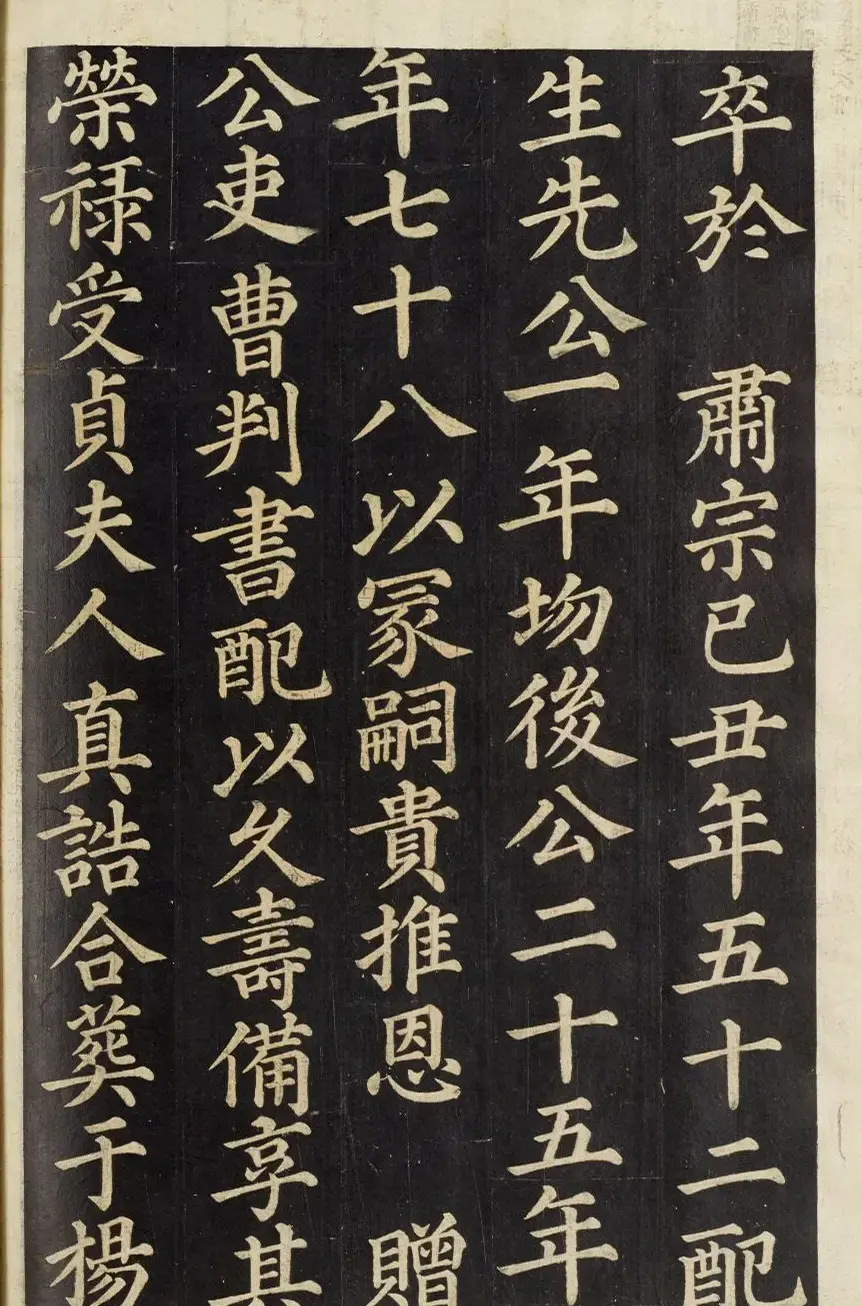 卒於 肅宗己丑年五十二配
生先公一年圽後公二十五年
年七十八以冢嗣貴推恩 贈
公吏曹判書配以久壽備享其
榮祿受貞夫人真誥合葬于楊